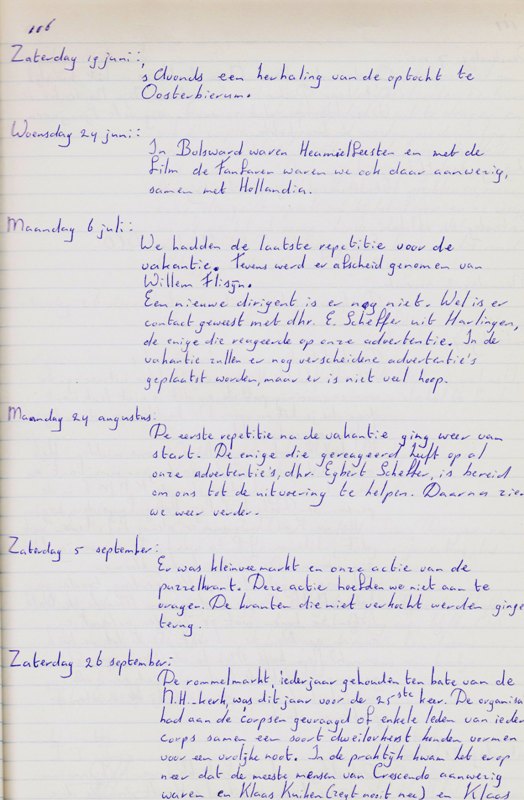 106
Zaterdag 19 juni:
's Avonds een herhaling van de optocht te
Oosterbierum.
Woensdag 24 juni:
In Bolsward waren Heamielfeesten en met de
film de Fanfaren waren we ook daar aanwezig,
samen met Hollandia.
Maandag 6 juli:
We hadden de laatste repetitie voor de
vakantie. Tevens werd er afscheid genomen van
Willem Flisijn.
Een nieuwe dirigent is er nog niet. Wel is er
contact geweest met dhr. E. Scheffer uit Harlingen,
de enige die reageerde op onze advertentie. In de
vakantie zullen er nog verscheidene advertentie's
geplaatst worden, maar er is niet veel hoop.
Maandag 24 augustus:
De eerste repetitie na de vakantie ging weer van
start. De enige die gereageerd heeft op al
onze advertentie's, dhr. Egbert Scheffer, is bereid
om ons tot de uitvoering te helpen. Daarna zien
we weer verder.
Zaterdag 5 september:
Er was kleinveemarkt en onze actie van de
puzzelkrant. Deze actie hoefden we niet aan te
vragen. De kranten die niet verkocht werden ginge
terug.
Zaterdag 26 september:
De rommelmarkt, ieder jaar gehouden ten bate van de
N.H.-kerk, was dit jaar voor de 25ste keer. De organisa
had aan de corpsen gevraagd of enkele leden van ieder
corps samen een soort dweilorkest konden vormen
voor een vrolijke noot. In de praktijk kwam het er op
neer dat de meeste mensen van Crescendo aanwezig
waren en Klaas Kuiken (zegt nooit nee) en Klaas